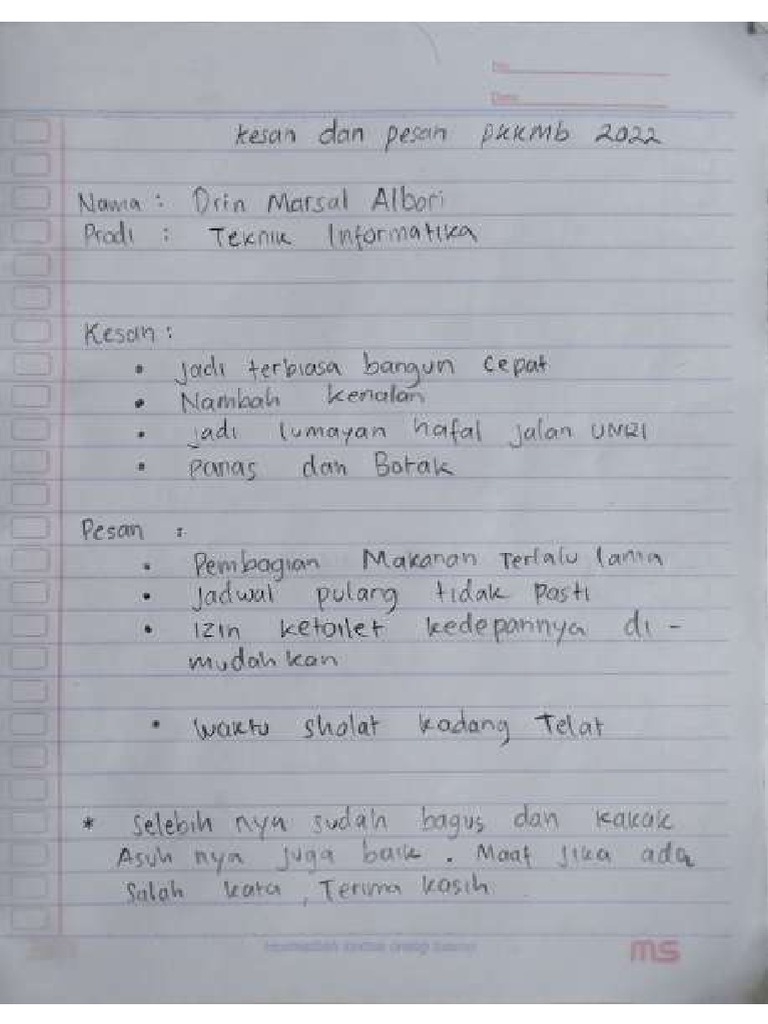 No
Date
kesan dan pesan PKKMB 2022
Nama : Drin Marsal Albori
Prodi : Teknik Informatika
Kesan :
• Jadi terbiasa bangun cepat
• Nambah kenalan
• jadi lumayan hafal jalan UNRI
• panas dan Botak
Pesan :
• Pembagian Makanan Terlalu lama
• Jadwal pulang tidak pasti
• Izin ketoilet kedepannya di -
mudahkan
• Waktu sholat kadang Telat
* Selebih nya sudah bagus dan kakak
Asuh nya juga baik . Maaf jika ada
Salah kata , Terima kasih
ms